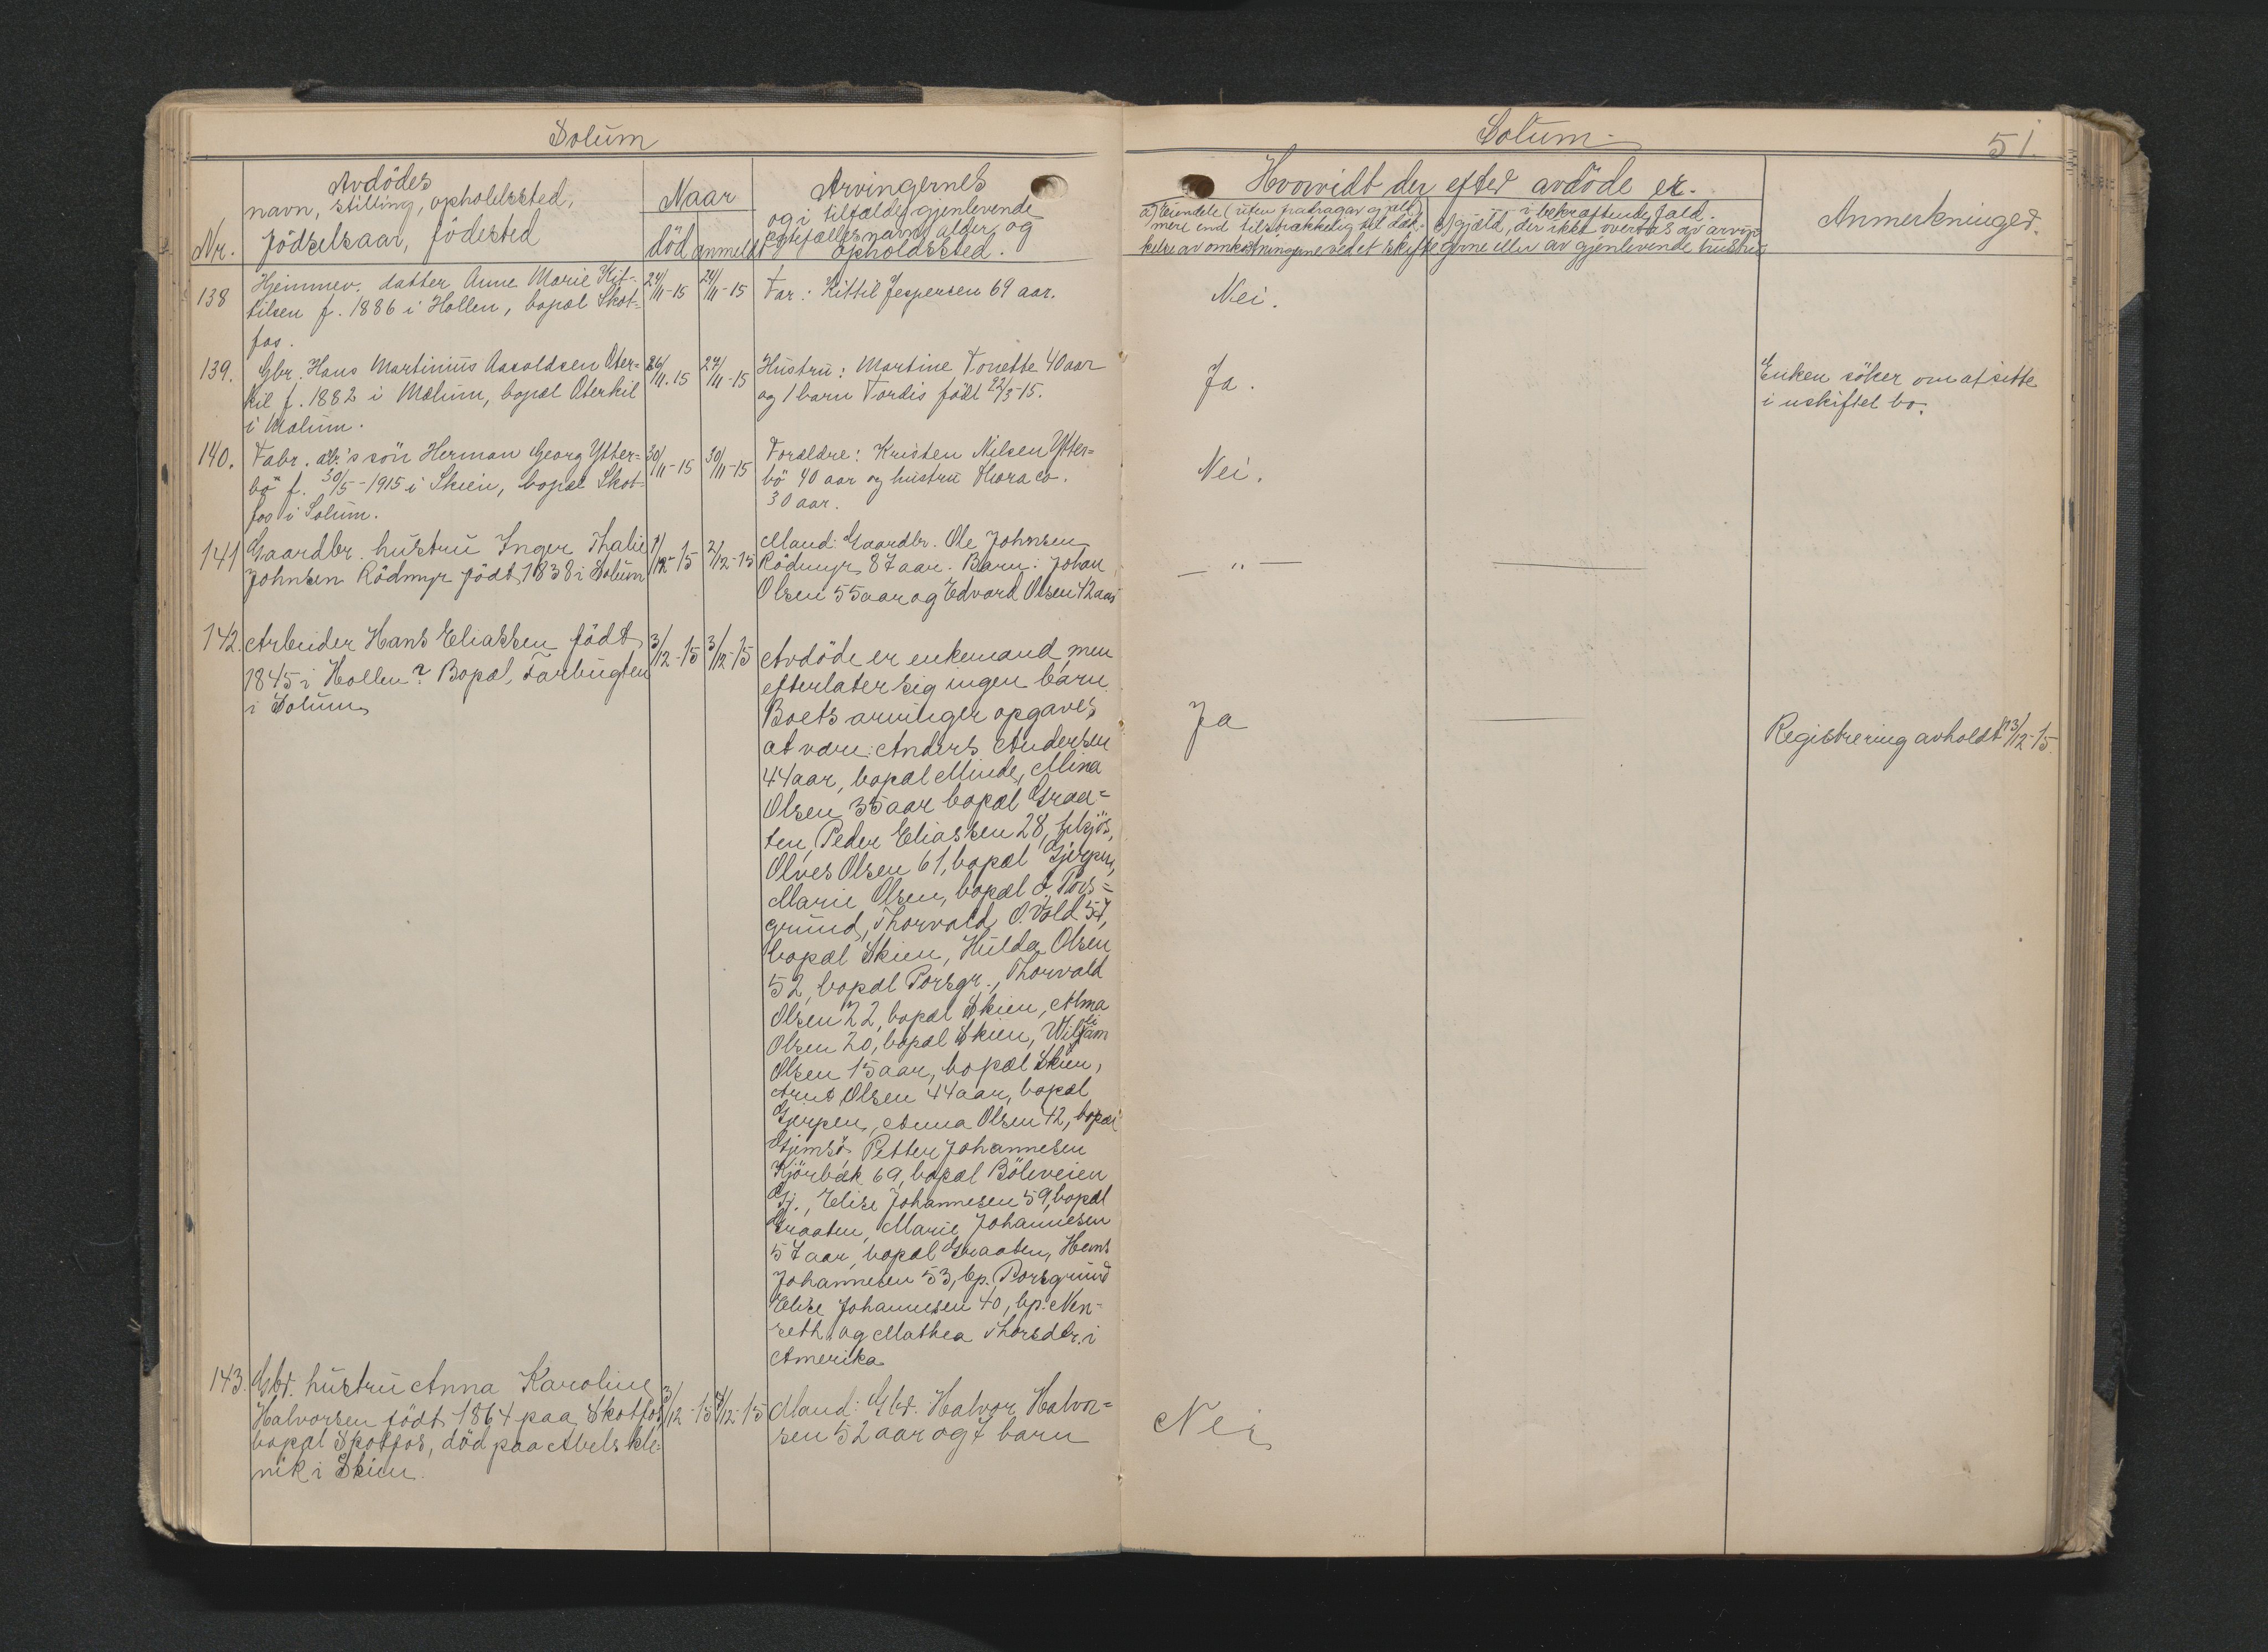 Solum
Avdödes
navn, stilling, opholdssted,
Nr. födselsaar, födested
Naar
död anmeldt
Arvingernes
og i tilfælde gjenlevende
egtefælles navn, alder og
opholdssted.
138 Hjemmev. datter Anne Marie Kit-
tilsen f. 1886 i Hollen, bopæl Skot-
fos.
24/11-15 24/11-15
Far: Kittil Jespersen 69 aar.
139. Gbr. Hans Martinius Aasoldsen Oter=
kil f. 1882 i Mælum, bopæl Oterkil
i Mælum.
26/11-15 27/11-15
Hustru: Martine Tonette 40 aar
og 1 barn Tordis födt 22/3-15.
140. Fabr. arb's sön Herman Georg Ytter=
bö f. 30/5-1915 i Skien, bopæl Skot-
fos i Solum.
30/11-15 30/11-15
Forældre: Kristen Nilsen Ytter=
bö 40 aar og hustru Thora
30 aar.
141 Gaardbr. hustru Inger Thalie
Johnsen Rödmyr födt 1838 i Solum
1/12-15 2/12-15
Mand: Gaardbr. Ole Johnsen
Rödmyr 87 aar. Barn: Johan
Olsen 55 aar og Edvard Olsen 42 aar
142. Arbeider Hans Eliassen födt
1845 i Hollen? Bopæl, Farbugten
i Solum
3/12-15 3/12-15
Avdöde er enkemand, men
efterlater sig ingen barn.
Boets arvinger opgaves
at være: Anders Andersen
44 aar, bopæl Minde, Mina
Olsen 35 aar bopæl Graa=
ten, Peder Eliassen 28,
Olves Olsen 61, bopæl Gjerpen,
Marie Olsen, bopæl ö. Pors=
grund, Thorvald O. Vold 57,
bopæl Skien, Hulda Olsen
52, bopæl Porsgr., Thorvald
Olsen 22, bopæl Skien, Alma
Olsen 20, bopæl Skien, Wiliam
Olsen 15 aar, bopæl Skien,
Arnt Olsen 44 aar, bopæl
Gjerpen, Anna Olsen 42, bopæl
Gimsö, Petter Johannesen
Kjörbæk 69, bopæl Böleveien
Gj., Elise Johannesen 59, bopæl
Graaten, Marie Johannesen
57 aar, bopæl Graaten, Hans
Johannesen 53, bp. Porsgrund
Elise Johannesen 40, bp. Nen-
seth og Mathea Thorsdtr. i
Amerika
143. Gbr. hustru Anna Karoline
Halvorsen födt 1864 paa Skotfos,
bopæl Skotfos, död paa Abels kli-
nik i Skien.
3/12-15 /12-15
Mand: Gbr. Halvor Halvor=
sen 52 aar og 7 barn
Solum 51.
Hvorvidt der efter avdöde er.
a) Eiendele (uten fradrag av gjæld)
mere end tilstrækkelig til dæk-
kelse av omkostningerne ved et skifte
i bekræftende fald.
b) gjæld, der ikke overtas av arvin-
gerne eller av gjenlevende hustru
Anmerkninger.
Nei.
Ja.
Enken söker om at sitte
i uskiftet bo.
Nei.
— " —
Ja
Registrering avholdt 13/12-15.
Nei